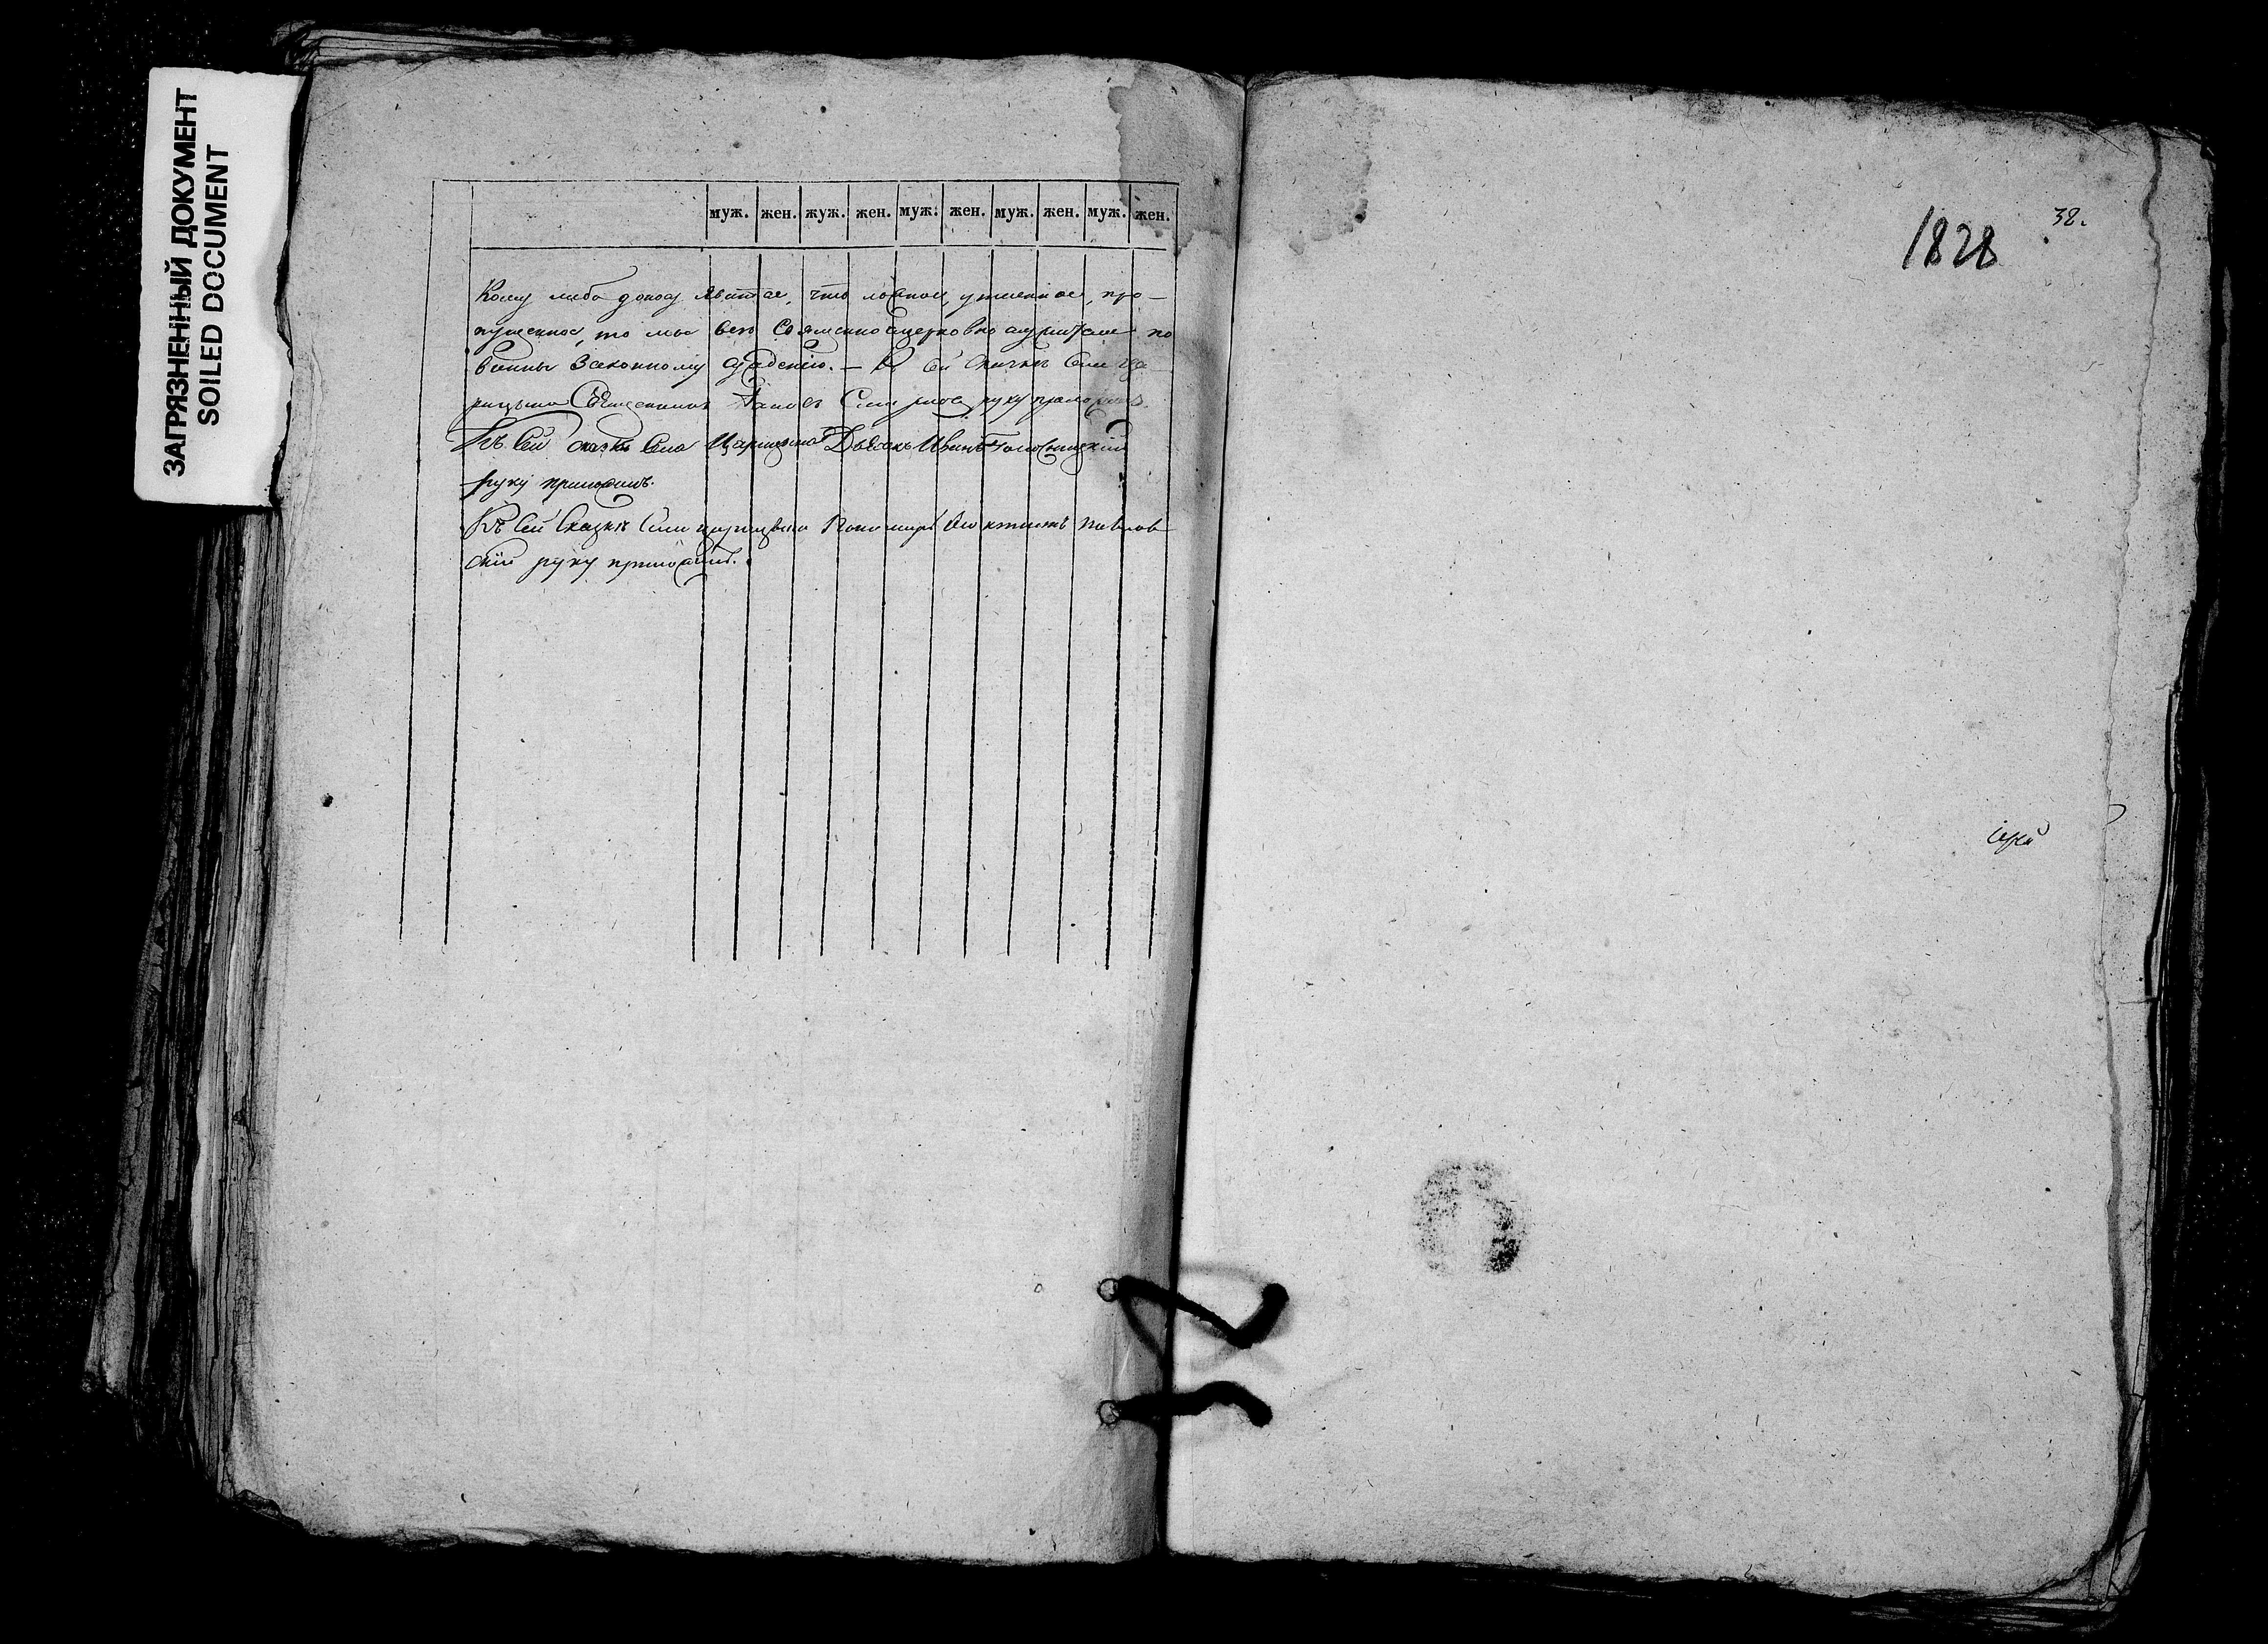 ЗАГРЯЗНЕННЫЙ ДОКУМЕНТ
SOILED DOCUMENT
муж. жен. жуж. жен. муж. жен. муж. жен. муж. жен.
кому либо доносу явится, что ложное, утаенное, про-
пущенное, то мы все священноцерковнослужители по
винны законному суждению. – К сей скаскѣ села Ца-
рицына Священникъ руку приложилъ.
Къ сей скаскѣ села Царицына Дьяконъ Иванъ руку приложилъ.
Къ сей Сказкѣ села царицына Пономарь Павлов
скій руку приложилъ.
1828
38.